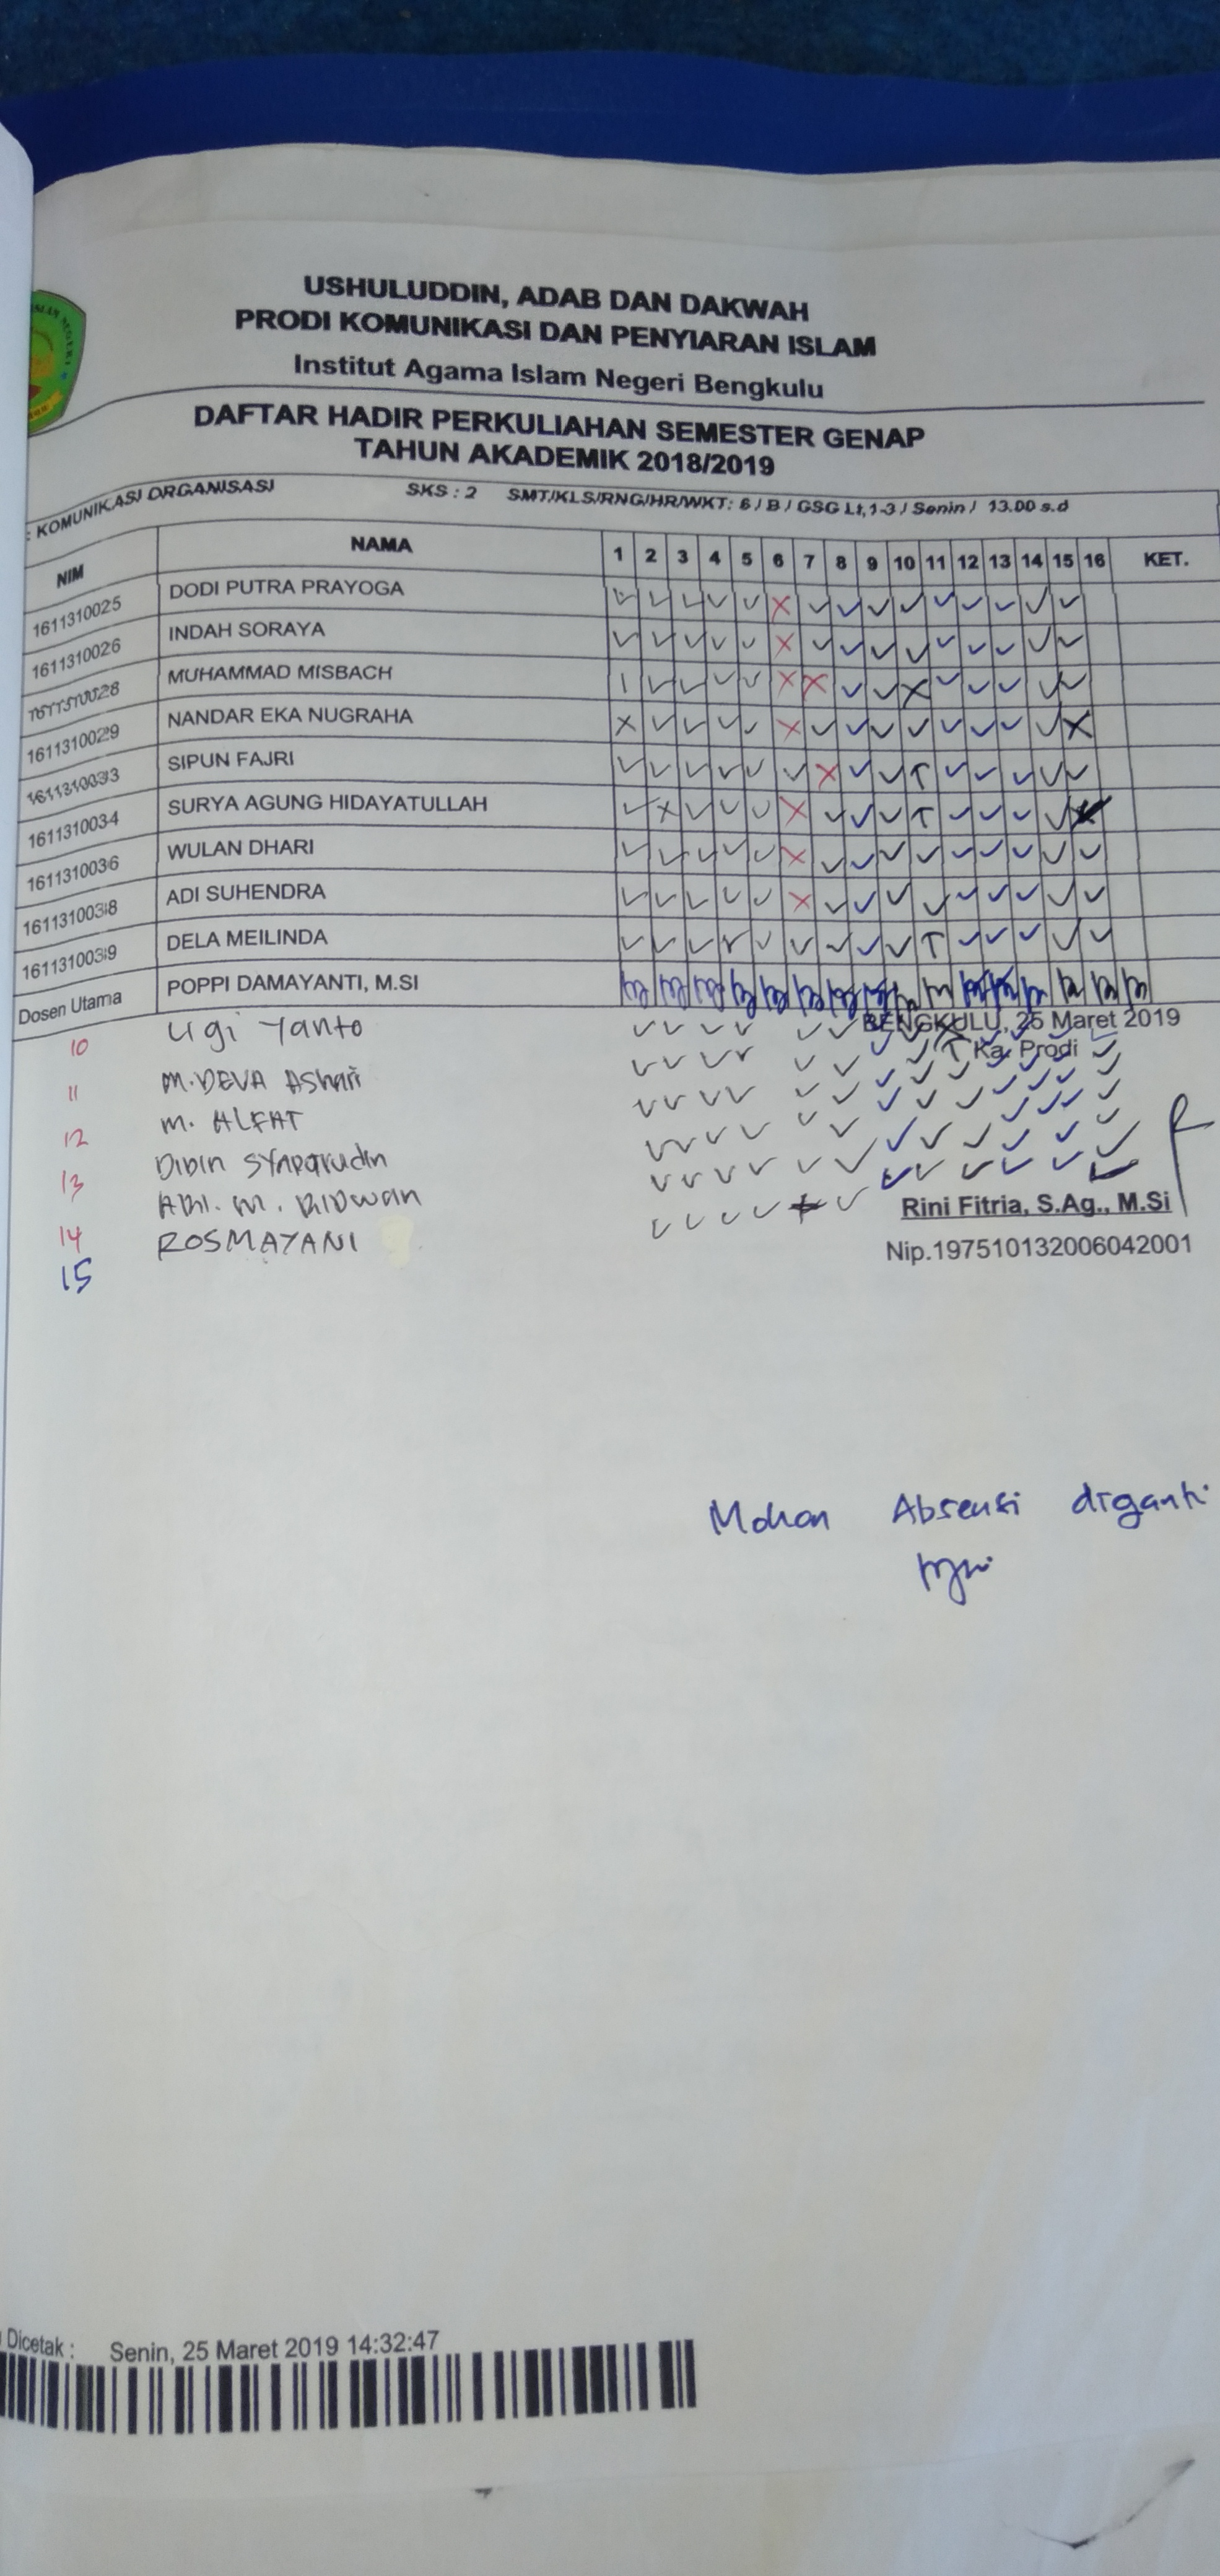 USHULUDDIN, ADAB DAN DAKWAH
PRODI KOMUNIKASI DAN PENYIARAN ISLAM
Institut Agama Islam Negeri Bengkulu
DAFTAR HADIR PERKULIAHAN SEMESTER GENAP
TAHUN AKADEMIK 2018/2019
: KOMUNIKASI ORGANISASI SKS : 2 SMT/KLS/RNG/HR/WKT: 6 / B / GSG Lt,1-3 / Senin / 13.00 s.d
NIM NAMA 1 2 3 4 5 6 7 8 9 10 11 12 13 14 15 16 KET.
1611310025 DODI PUTRA PRAYOGA
1611310026 INDAH SORAYA
1611310028 MUHAMMAD MISBACH
1611310029 NANDAR EKA NUGRAHA
1611310033 SIPUN FAJRI
1611310034 SURYA AGUNG HIDAYATULLAH
1611310036 WULAN DHARI
1611310038 ADI SUHENDRA
1611310039 DELA MEILINDA
Dosen Utama POPPI DAMAYANTI, M.SI
BENGKULU, 25 Maret 2019
Ka. Prodi
10 Ugi Yanto
11 M.DEVA Ashari
12 M. ALFAT
13 DIDIN
14 M. RIDWAN
15 ROSMAYANI
Rini Fitria, S.Ag., M.Si
Nip.197510132006042001
Mohon Absensi diganti
Dicetak : Senin, 25 Maret 2019 14:32:47